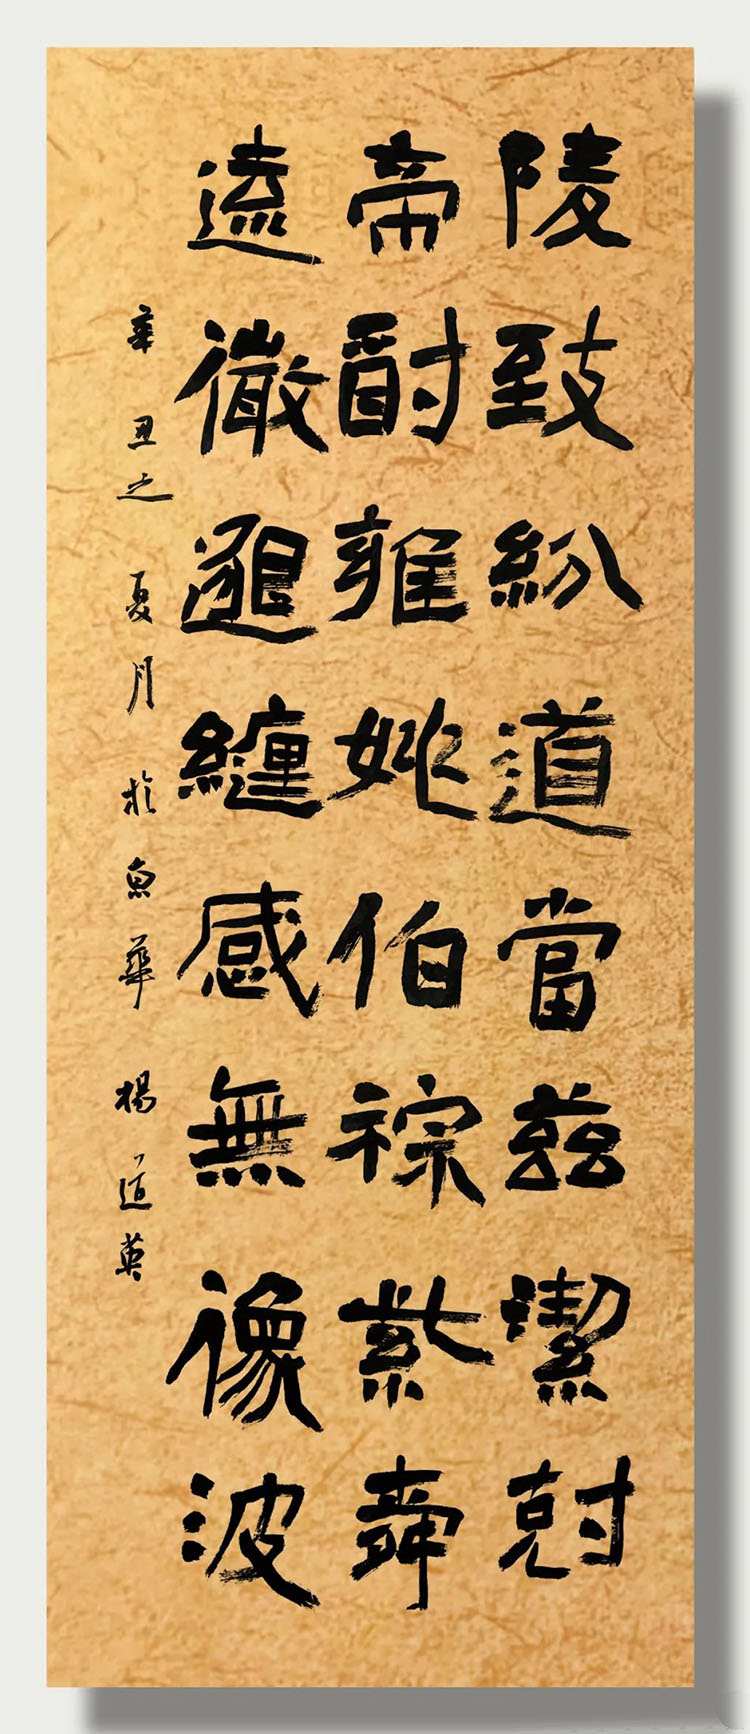 陵致紛道當茲潔尅
帝酎雍姚伯祿紫舜
遠徹遐纏感無像波
辛丑之夏月於魚華楊道英